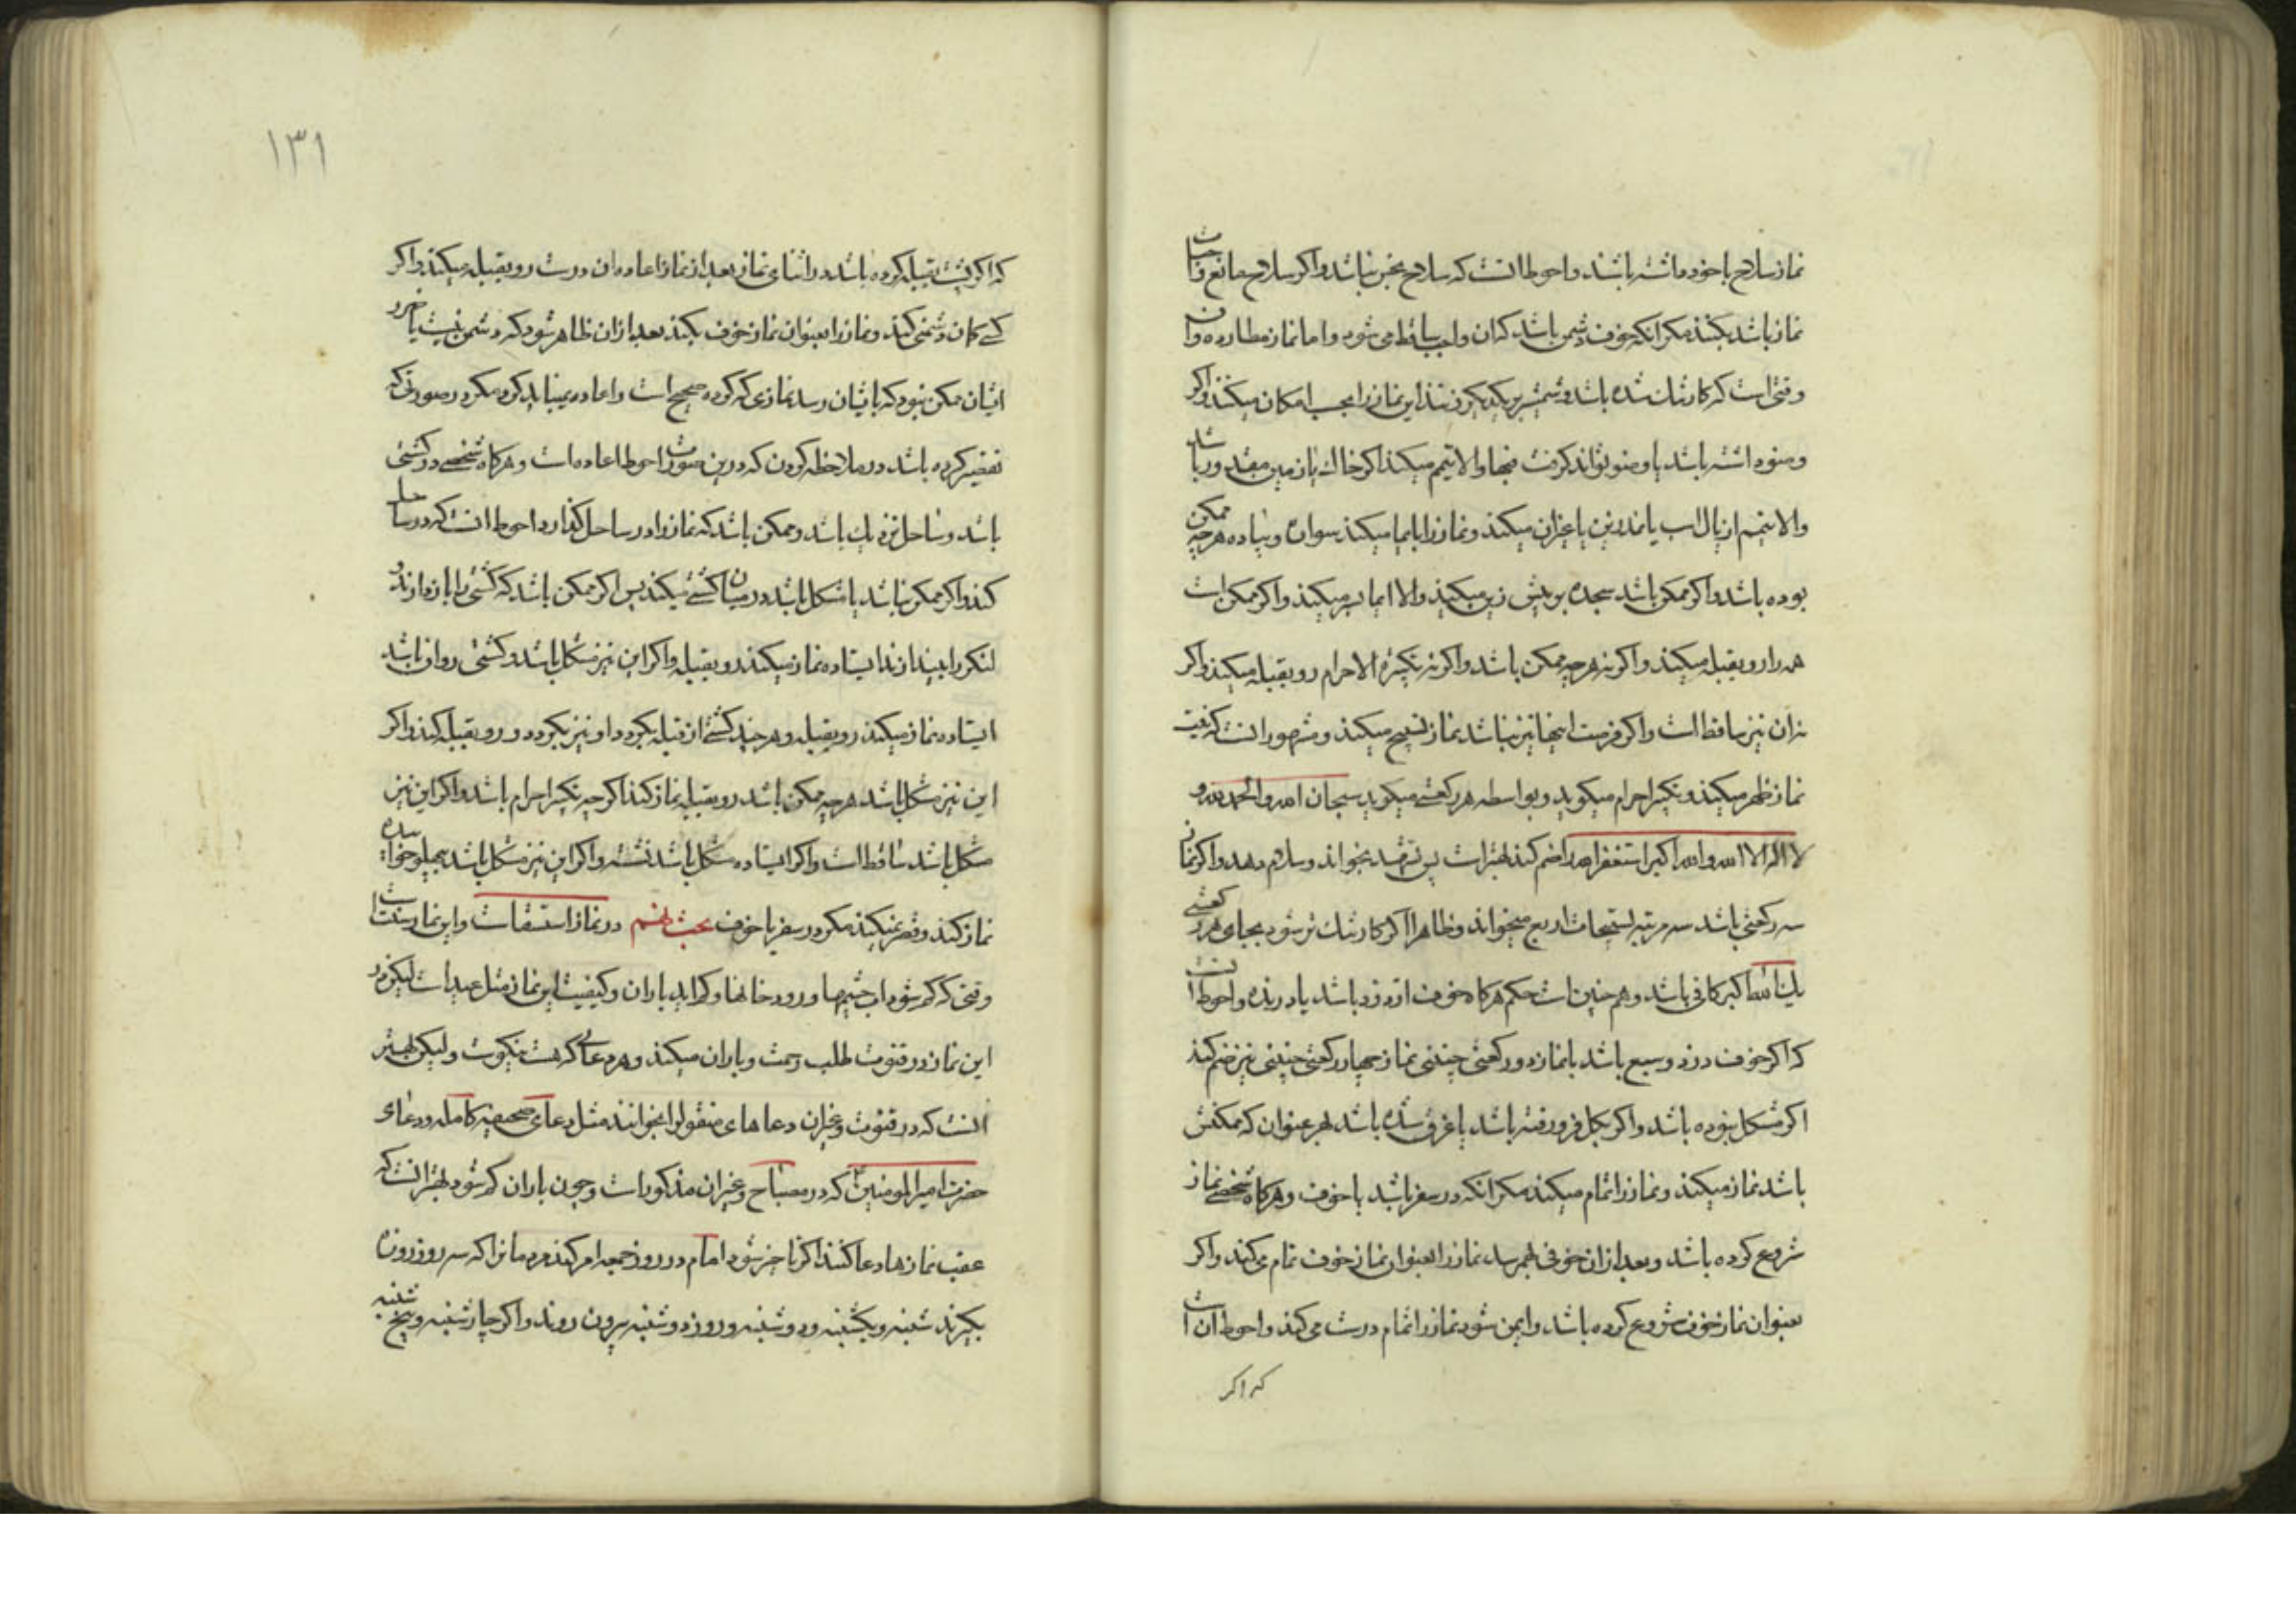 نماز سلاح با خود داشته باشند و احوط انست که سلاح نجس نباشد و اکر سلاح مانع واجبات
نماز باشد بکنند مکر انکه خوف دشمن باشد که ان واجب ساقط می شود و اما نماز مطارده و ان
وقتی است که کار تنك شده باشد و شمشیر بر یکدیکر زنند این نماز را بحسب امکان میکنند و اکر
وضو داشته باشد یا وضو تواند کرفت فبها و الا تیمم میکند اکر خاك یا زمین مقدور باشد
و الا تیمم از یال اسب یا نمد زین یا غیر ان میکند و نماز را بایما میکند سواره و پیاده هرچه ممکن
بوده باشد و اکر ممکن باشد سجده بر پیش زین میکند و الا ایما بسر میکند و اکر ممکن است
همه را رو بقبله میکند و اکر نه هرچه ممکن باشد و اکر نه تکبیرة الاحرام رو بقبله میکند و اکر
نه ان نیز ساقط است و اکر فرصت اینها نیز نباشد نماز تسبیح میکند و مشهور انست که نیت
نماز ظهر میکند و تکبیر احرام میکوید و بواسطه هر رکعتی میکوید سبحان الله و الحمد لله و
لا اله الا الله و الله اکبر استغفر الله را ضم کند بهتر است پس تشهد بخواند و سلام دهد و اکر نماز
سه رکعتی باشد سه مرتبه تسبیحات اربع میخواند و ظاهرا اکر کار تنك تر شود بجای هر رکعتی
یك الله اکبر کافی باشد و هم چنین است حکم هر کاه خوف از دزد باشد یا درنده و احوط انست
که اکر خوف دزد و سبع باشد با نماز دو رکعتی چنینی نماز چهار رکعتی چنینی نیز ضم کند
اکر مشکل نبوده باشد و اکر بکل فرو رفته باشد یا غرق شده باشد بهر عنوان که ممکنش
باشد نماز میکند و نماز را تمام میکند مکر انکه در سفر باشد یا خوف و هر کاه شخصی نماز
شروع کرده باشد و بعد از ان خوفی بهم رسد نماز را بعنوان نماز خوف تمام می کند و اکر
بعنوان نماز خوف شروع کرده باشد و ایمن شود نماز را تمام درست می کند و احوط ان است
که اکر
۱۳۱
که اکر پشت بقبله کرده باشد در اثنای نماز بعد از نماز اعاده ان درست رو بقبله میکند و اکر
کسی کمان دشمنی کند و نماز را بعنوان نماز خوف بکند بعد از ان ظاهر شود که دشمن نیست یا ضرر
ایشان ممکن نبود که بایشان رسد نمازی که کرده صحیح است و اعاده نمیباید کرد مکر در صورتی که
تقصیر کرده باشد در ملاحظه کردن که درین صورت احوط اعاده است و هرکاه شخصی در کشتی
باشد و ساحل نزدیك باشد و ممکن باشد که نماز را در ساحل کذارد احوط انست که در ساحل
کند و اکر ممکن نباشد یا مشکل باشد در میان کشتی میکند پس اکر ممکن باشد که کشتی را بازدارند و
لنکر را بیندازند ایستاده نماز میکنند رو بقبله و اکر این نیز مشکل باشد و کشتی روان باشد
ایستاده نماز میکند رو بقبله و هرچند کشتی از قبله بکردد او نیز بکردد و رو بقبله کند و اکر
این نیز مشکل باشد هرچه ممکن باشد رو بقبله نماز کند اکرچه تکبیر احرام باشد و اکر این نیز
مشکل باشد ساقط است و اکر ایستاده مشکل باشد نشسته و اکر این نیز مشکل باشد بپهلو خوابیده
نماز کند و قصر نمیکند مکر در سفر یا خوف بحث دهم در نماز استسقاست و این نماز سنت است
وقتی که کم شود اب چشمها و رودخانها و کم اید باران و کیفیت این نماز مثل عید است لیکن در
این نماز در قنوت طلب رحمت و باران میکند و هر دعائی که هست نیکوست و لیکن بهتر
انست که در قنوت و غیر ان دعاهای منقول را بخوانند مثل دعای صحیفه کامله و دعای
حضرت امیر المومنین که در مصباح و غیر ان مذکور است و چون باران کم شود بهتر انست که
عقب نمازها دعا کنند اکر تاخیر شود امام در روز جمعه امر کند مردمانرا که سه روز روزه
بکیرند شنبه و یکشنبه و دوشنبه و روز دوشنبه بیرون روند و اکر چهارشنبه و پنج شنبه